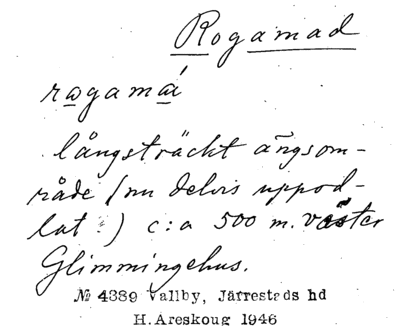 Rogamad
rogamá
långsträckt ängsom-
råde (nu delvis uppod-
lat.) c:a 500 m. väster
Glimmingehus.
№ 4389 Vallby, Järrestads hd
H. Areskoug 1946